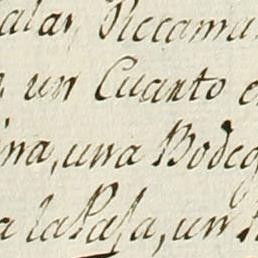 alar, Riccamar
un Cuanto e
ina, una Bodeg
a la Pasa, un